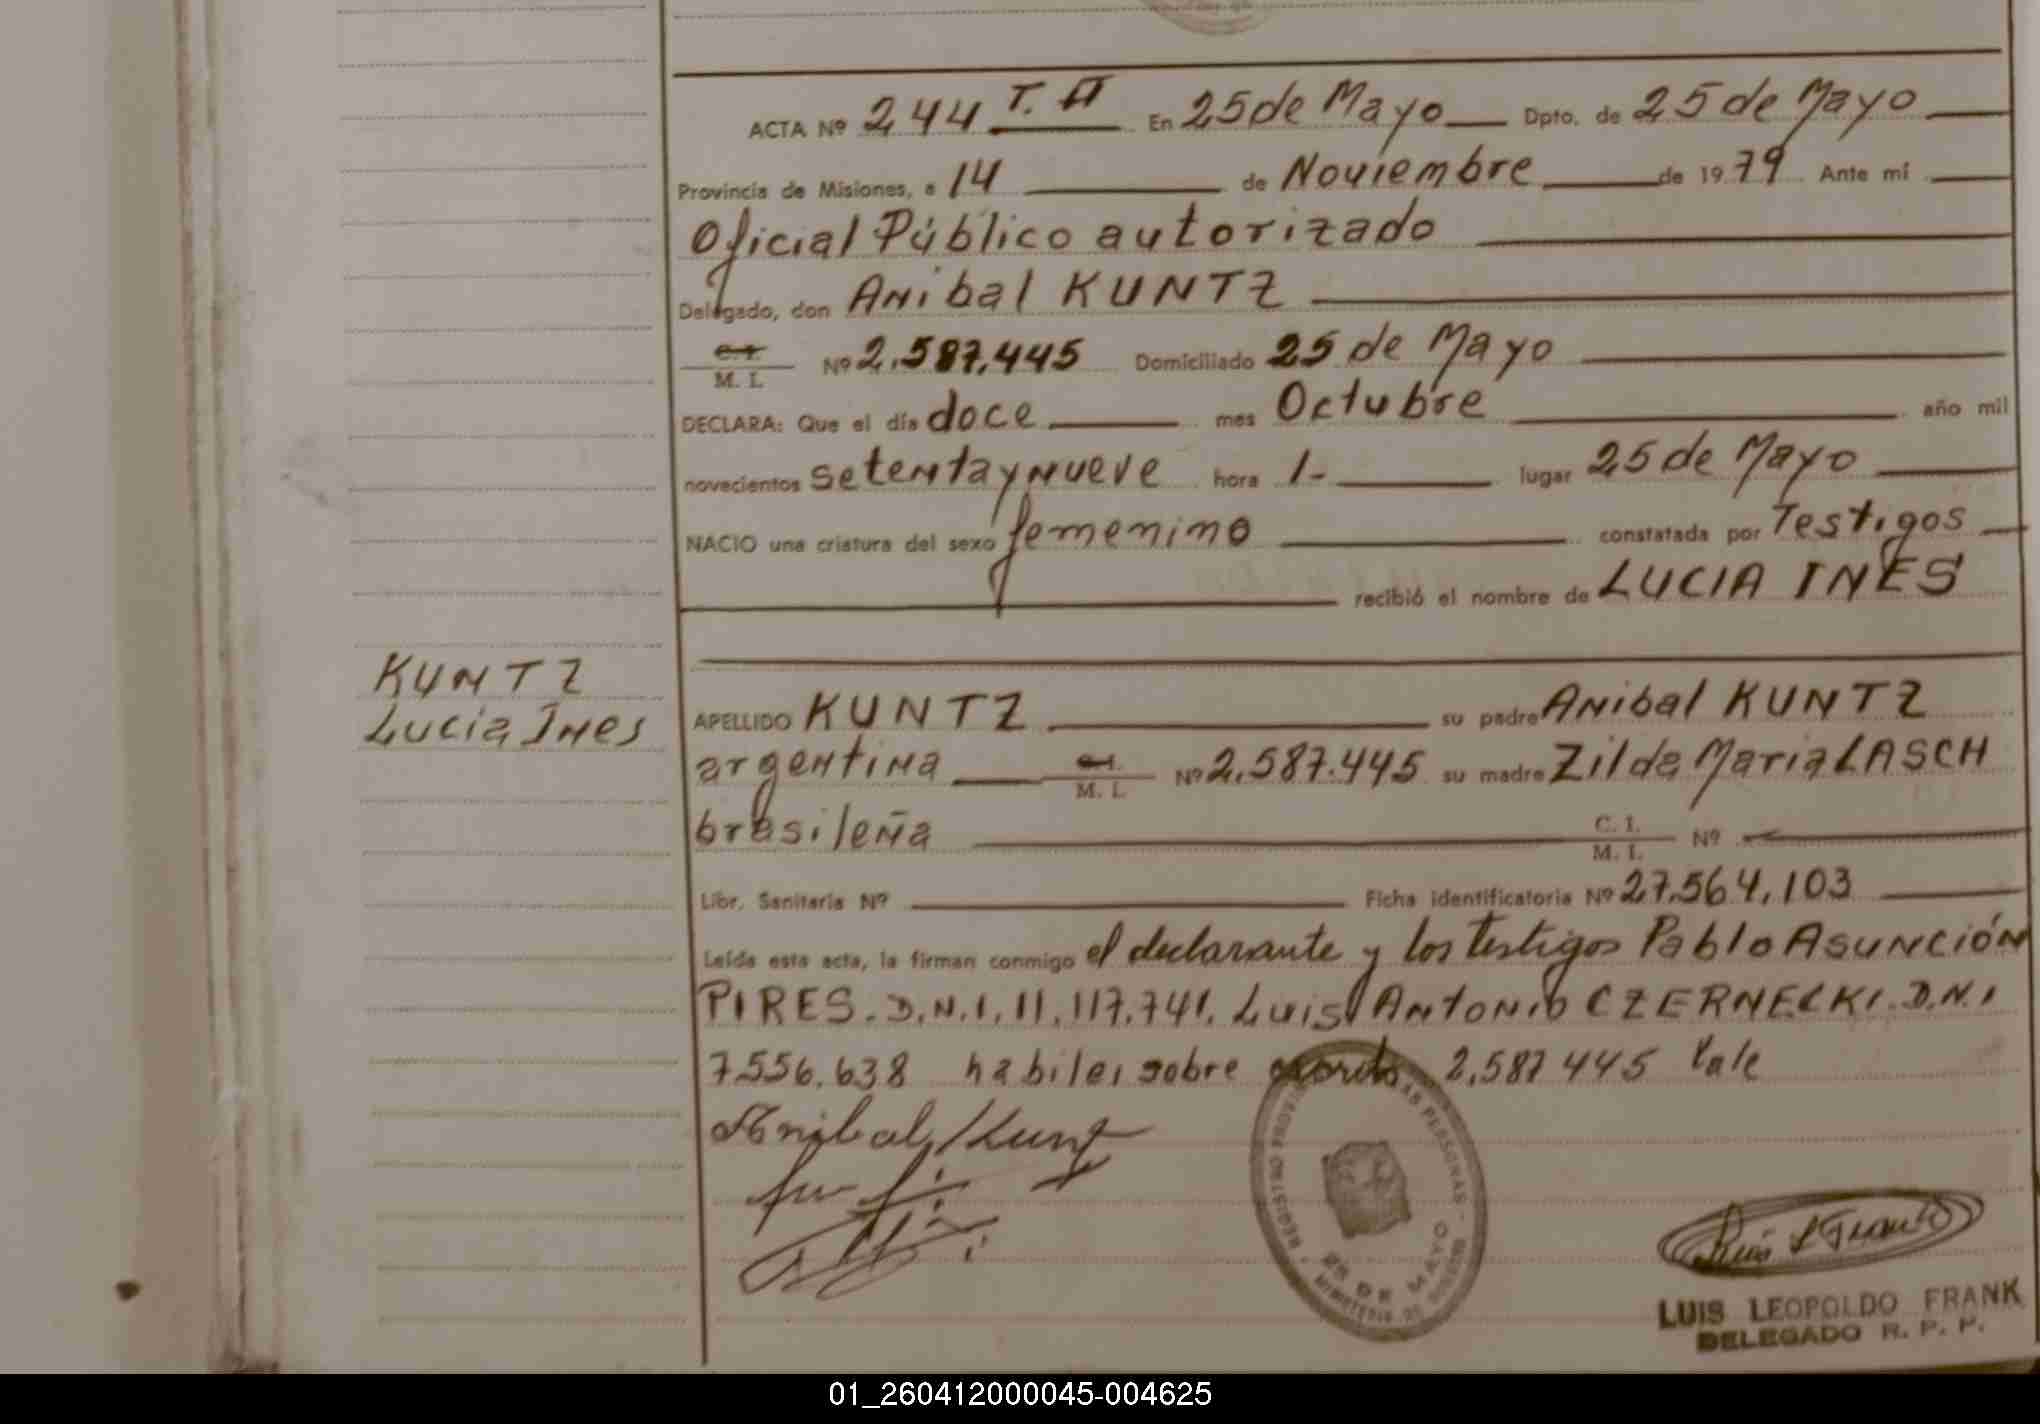 ACTA Nº 244 T. II En 25 de Mayo Dpto. de 25 de Mayo
Provincia de Misiones, a 14 de Noviembre de 1979 Ante mí
Oficial Público autorizado
Delegado, don Anibal KUNTZ
C.I. M. I. Nº 2.587.445 Domiciliado 25 de Mayo
DECLARA: Que el día doce mes Octubre año mil
novecientos setenta y nueve hora 1- lugar 25 de Mayo
NACIO una criatura del sexo femenino constatada por Testigos
recibió el nombre de LUCIA INES
KUNTZ
Lucia Ines
APELLIDO KUNTZ su padre Anibal KUNTZ
argentina C.I. M. I. Nº 2.587.445 su madre Zilda Maria LASCH
brasileña C. I. M. I. Nº
Libr. Sanitaria Nº Ficha identificatoria Nº 27.564.103
Leída esta acta, la firman conmigo el declarante y los testigos Pablo Asunción
PIRES. D.N.I. 11.117.741. Luis Antonio CZERNECKI. D.N.I
7556.638 habilei sobre escrito 2.587 445 Vale
Anibal Kuntz
REGISTRO PROVINCIAL PERSONAS
25 DE MAYO
MINISTERIO DE GOBIERNO
Luis L Frank
LUIS LEOPOLDO FRANK
DELEGADO R. P. P.
01_260412000045-004625